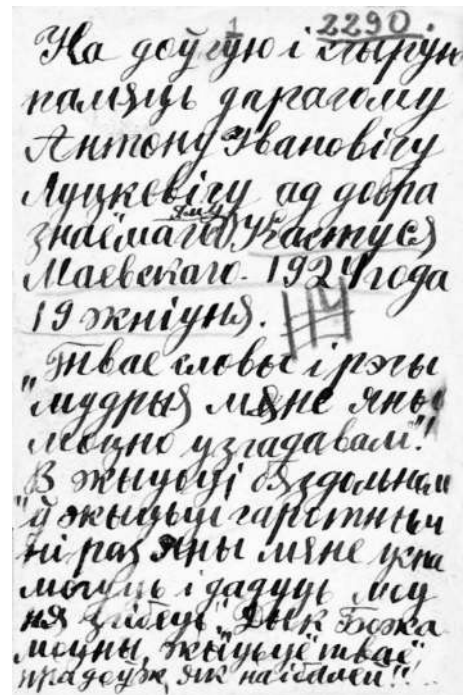 1 2290.
На доўгую і шчырую
памяць дарагому
Антону Івановічу
Луцкевічу ад добра
яму
знаёмаго Кастуся
Маевскаго. 1924 года
19 жніўня.
Твае словы і рэчы
"мудрыя мяне яны
моцно узгадавалі"!
В жыцьці бяздольном
"ў жыцьці гаротным
ні раз яны мяне успа
могуць і дадуць моц
ня згібець". Дык Божа
моцны, жыцьцё тваё"
прадоўж, як найбалей!"!